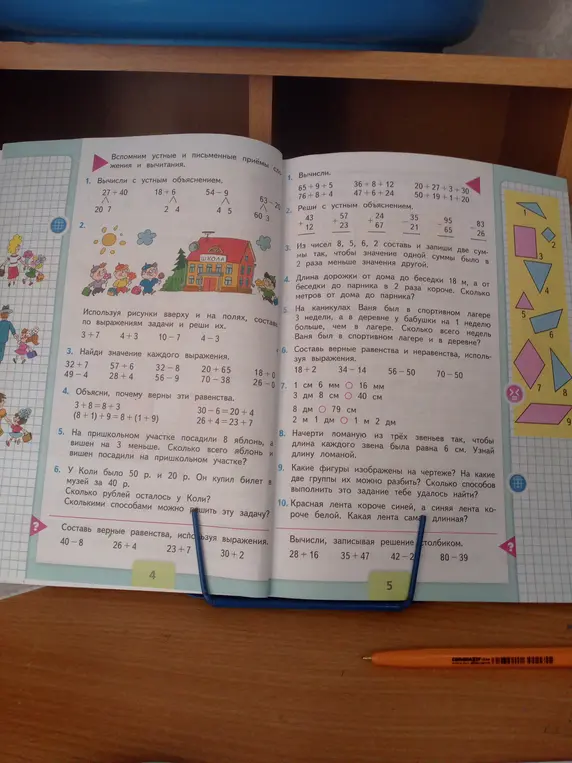 Вспомним устные и письменные приёмы
жения и вычитания.
1. Вычисли с устным объяснением.
27 + 40 18 + 6 54 - 9
20 7 2 4 4 5 60 3
2.
ШКОЛА
Используя рисунки вверху и на полях, составь
по выражениям задачи и реши их.
3 + 7 4 + 3 10 - 7 4 - 3
3. Найди значение каждого выражения.
32 + 7 57 + 6 32 - 8 20 + 65
49 - 4 28 + 4 56 - 9 70 - 38
4. Объясни, почему верны эти равенства.
3 + 8 = 8 + 3 30 - 6 = 20 + 4
(8 + 1) + 9 = 8 + (1 + 9) 26 + 4 = 23 + 7
5. На пришкольном участке посадили 8 яблонь, а
вишен на 3 меньше. Сколько всего яблонь и
вишен посадили на пришкольном участке?
6. У Коли было 50 р. и 20 р. Он купил билет в
музей за 40 р.
Сколько рублей осталось у Коли?
Сколькими способами можно решить эту задачу?
?
Составь верные равенства, используя выражения.
40 - 8 26 + 4 23 + 7 30 + 2
4
1. Вычисли.
65 + 9 + 5 36 + 8 + 12 20 + 27 + 3 + 30
76 + 8 + 4 47 + 6 + 24 50 + 19 + 1 + 20
2. Реши с устным объяснением.
+ 43 + 57 + 24 - 35 - 95 - 83
12 23 67 21 65 26
3. Из чисел 8, 5, 6, 2 составь и запиши две сум-
мы так, чтобы значение одной суммы было в
2 раза меньше значения другой.
4. Длина дорожки от дома до беседки 18 м, а от
беседки до парника в 2 раза короче. Сколько
метров от дома до парника?
5. На каникулах Ваня был в спортивном лагере
3 недели, а в деревне у бабушки на 1 неделю
больше, чем в лагере. Сколько всего недель
Ваня был в спортивном лагере и в деревне?
6. Составь верные равенства и неравенства, исполь-
зуя выражения.
18 : 2 34 - 14 56 - 50 70 - 50
7. 1 см 6 мм 16 мм
3 дм 8 см 40 см
8 дм 79 см
2 м 1 дм 1 м 2 дм
8. Начерти ломаную из трёх звеньев так, чтобы
длина каждого звена была равна 6 см. Узнай
длину ломаной.
9. Какие фигуры изображены на чертеже? На какие
две группы их можно разбить? Сколько способов
выполнить это задание тебе удалось найти?
10. Красная лента короче синей, а синяя лента ко-
роче белой. Какая лента самая длинная?
?
Вычисли, записывая решение столбиком.
28 + 16 35 + 47 42 - 2 80 - 39
5
1
2
3
4
5
6
7
8
9